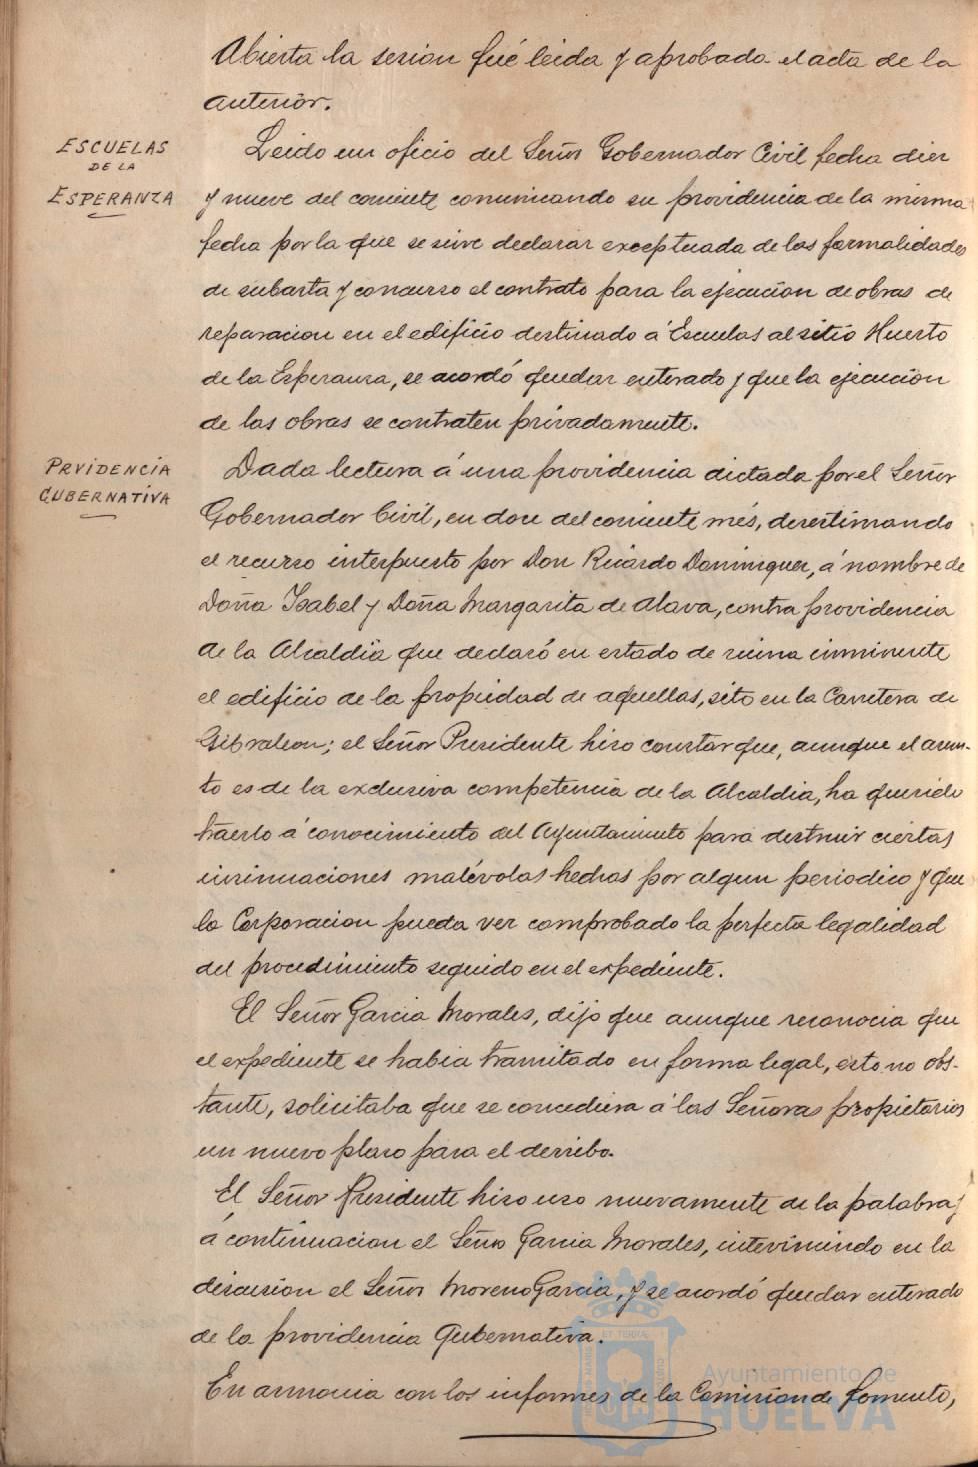 Abierta la sesion fué leida y aprobada el acta de la
anterior.
ESCUELAS
DE LA
ESPERANZA
Leido un oficio del Señor Gobernador Civil fecha diez
y nueve del corriente comunicando su providencia de la misma
fecha por la que se sirve declarar exceptuada de las formalidades
de subasta y concurso el contrato para la ejecucion de obras de
reparacion en el edificio destinado á Escuelas al sitio Huerto
de la Esperanza, se acordó quedar enterado y que la ejecucion
de las obras se contraten privadamente.
PRVIDENCIA
GUBERNATIVA
Dada lectura á una providencia dictada por el Señor
Gobernador Civil, en doce del corriente més, desestimando
el recurso interpuesto por Don Ricardo Dominguez, á nombre de
Doña Isabel y Doña Margarita de Alava, contra providencia
de la Alcaldia que declaró en estado de ruina inminente
el edificio de la propiedad de aquellas, sito en la Carretera de
Gibraleon; el Señor Presidente hizo constar que, aunque el asun-
to es de la exclusiva competencia de la Alcaldia, ha querido
traerlo á conocimiento del Ayuntamiento para destruir ciertas
insinuaciones malévolas hechas por algun periodico y que
la Corporacion pueda ver comprobado la perfecta legalidad
del procedimiento seguido en el expediente.
El Señor Garcia Morales, dijo que aunque reconocia que
el expediente se habia tramitado en forma legal, esto no obs-
tante, solicitaba que se concediera á las Señoras propietarias
un nuevo plazo para el derribo.
El Señor Presidente hizo uso nuevamente de la palabra y
á continuacion el Señor Garcia Morales, interviniendo en la
discusion el Señor Moreno Garcia, y se acordó quedar enterado
de la providencia Gubernativa.
En armonia con los informes de la Comision de Fomento,
Ayuntamiento de
HUELVA